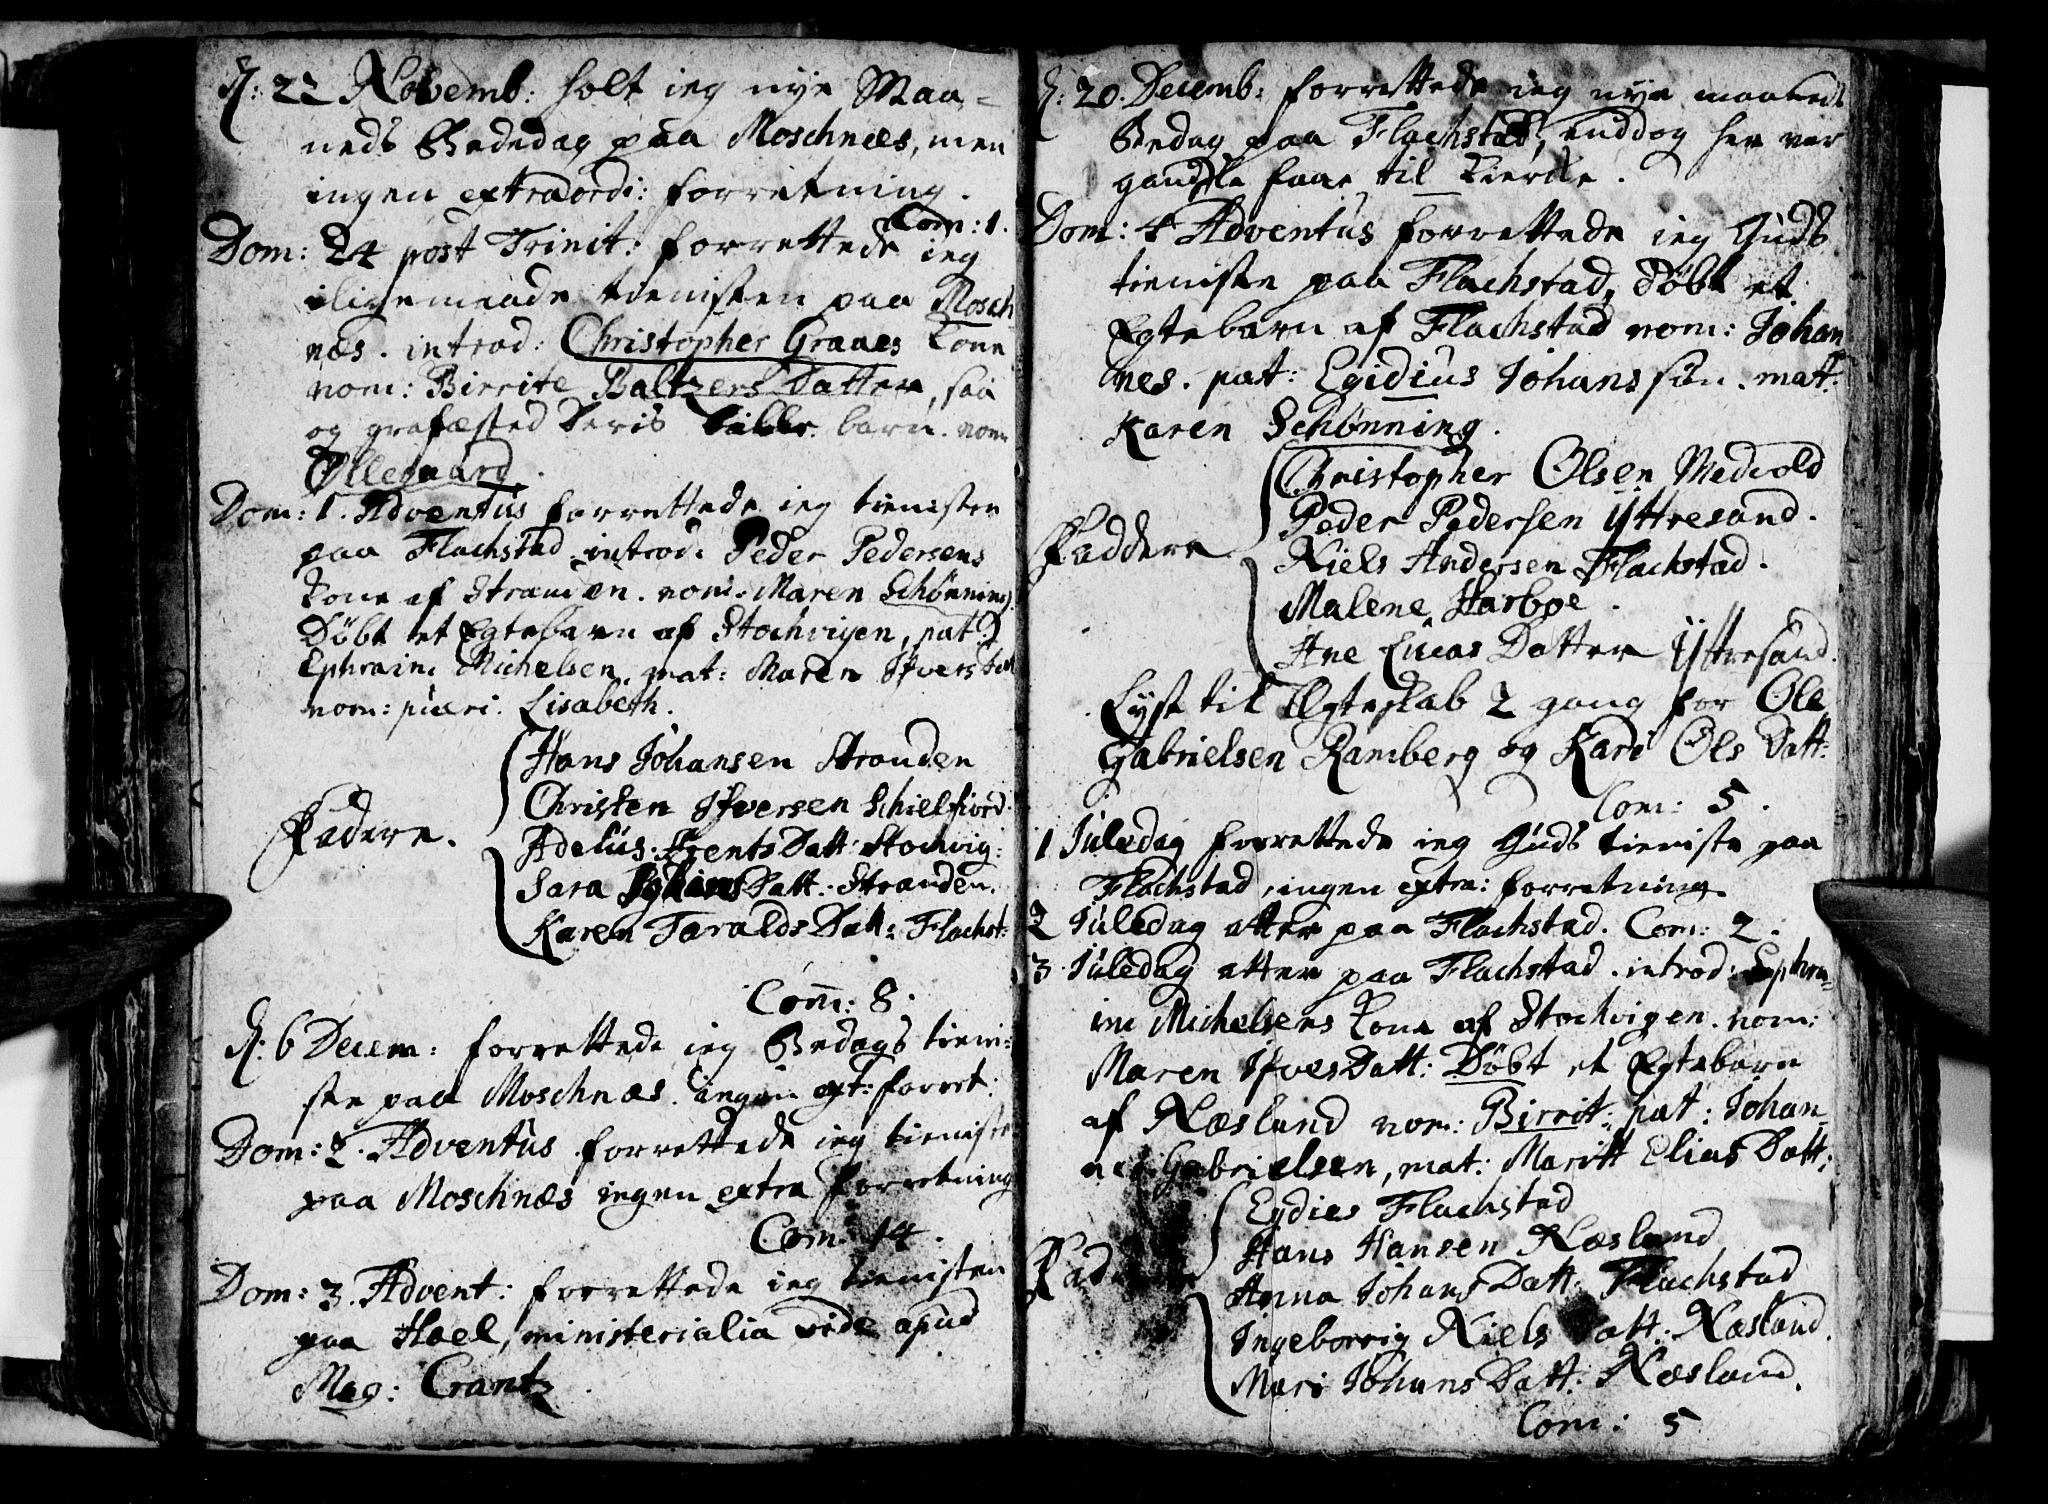 d: 22 Novemb: holt ieg nye Maa-
neds Bededag paa Moschnæs, men
ingen extraordi: forretning.
Com: 1.
Dom: 24 post Trinit: forrettede ieg
ligemaade tienisten paa Mosch
næs. introd: Christopher Graaes Kone
nom: Birrite Baltzers Datter, saa
og grafæsted Deris barn nom
Øllegaard.
Dom: 1. Adventus forrettede ieg tienisten
paa Flachstad introd: Peder Pedersens
Kone af Stranden. nom: Maren Schønning.
Døbt et Egtebarn af Stochvigen, pat:
Ephraim Michelsen, mat: Maren Ifvers Dat
nom: pueri. Lisabeth.
Hans Johansen Stranden
Christen Ifversen Schielfiord.
Fadere. Adelus Arents Datt: Stochvig:
Sara Johans Datt: Stranden.
Karen Taralds Datt: Flachst:
Com: 8.
d: 6 Decem: forrettede ieg Bedags tieni-
ste paa Moschnæs. ingen ext: forret:
Dom: 2. Adventus forrettede ieg tieniste
paa Moschnæs ingen extra forretning
Com: 14.
Dom: 3. Advent: forrettede ieg tienisten
paa Hael, ministerialia vide apud
Mag: Crantz.
d: 20. Decemb: forrettede ieg nye maaneds
Bedag paa Flachstad, enddog her var
gandske faae til Kierke.
Dom: 4 Adventus forrettede ieg Guds
tieniste paa Flachstad, Døbt et
Egtebarn af Flachstad nom: Johan
nes. pat: Egidius Johanssøn. mat:
Karen Schønning.
Christopher Olsen Medvold
Peder Pedersen Yttresand.
Faddere Niels Andersen Flachstad.
Malene Harboe.
Ane Lucas Datter Yttresand.
Lyst til Egteskab 2 gang for Ole
Gabrielsen Ramberg og Kari Ols Datt:
Com: 5.
1 Juledag forrettede ieg Guds tieniste paa
Flachstad, ingen extra: forretning.
2 Juledag atter paa Flachstad. Com: 2.
3. Juledag atter paa Flachstad. introd: Ephra-
im Michelsens Kone af Stochvigen. nom:
Maren Ifves Datt: Døbt et Egtebarn
af Næsland nom: Birrit: pat: Johan-
nes Gabrielsen, mat: Maritt Elias Datt:
Eydies Flachstad
Hans Hansen Næsland
Anna Johans Datt: Flachstad
Ingeborrig Niels Datt: Næsland.
Mari Johans Datt: Næsland.
Com: 5